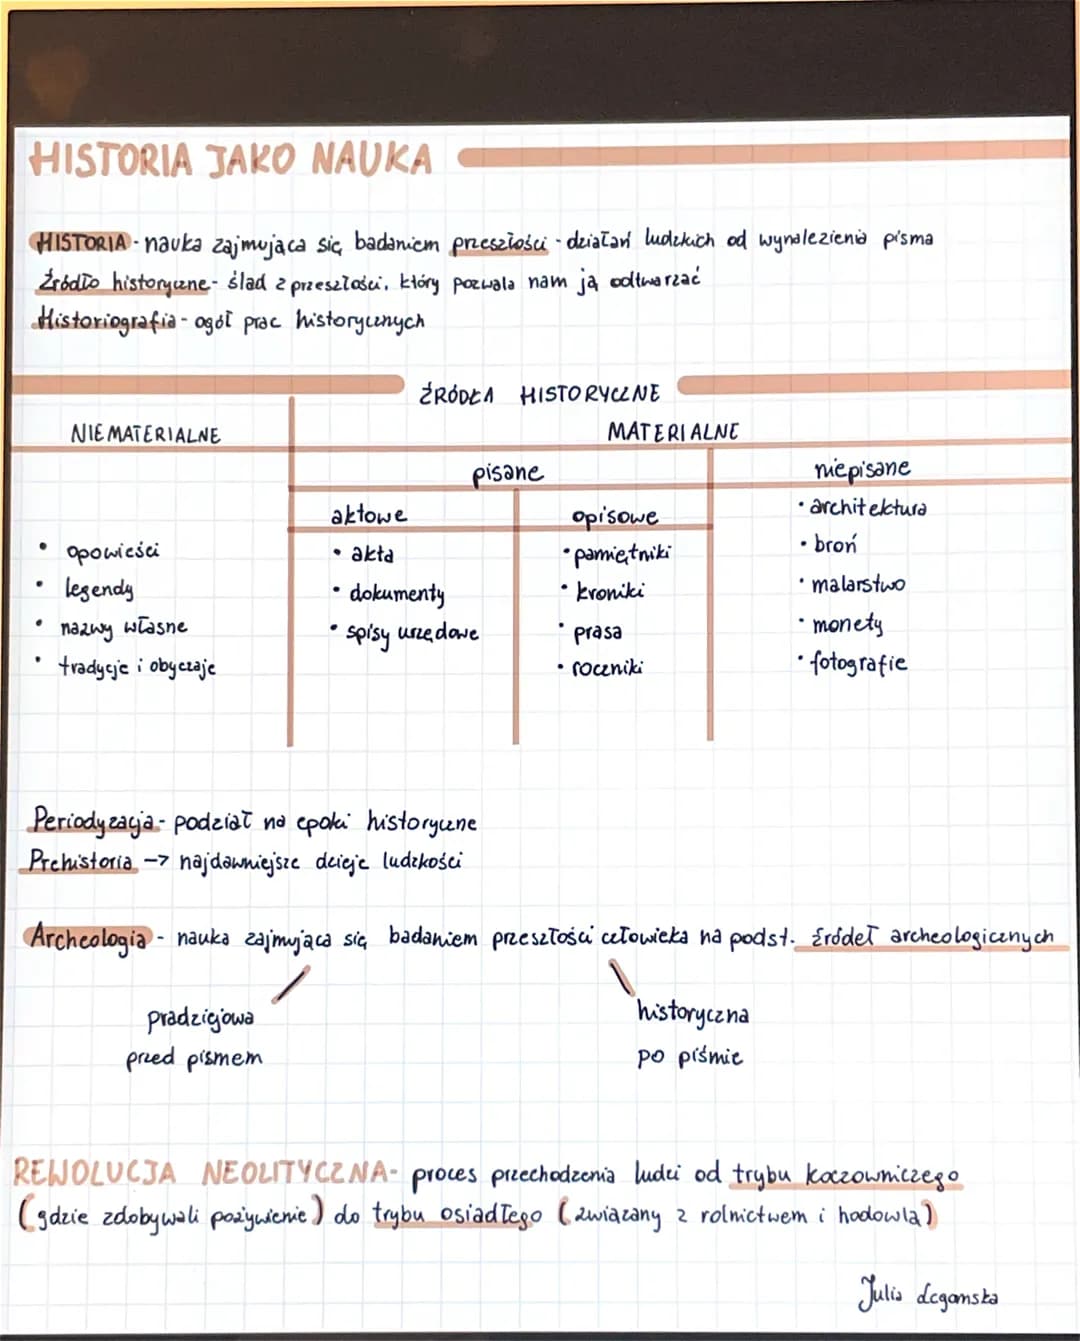 HISTORIA JAKO NAUKA
HISTORIA - nauka zajmująca się badaniem przeszłości - działań ludzkich od wynalezienia pisma
Źródło historyczne - ślad z przeszłości, który pozwala nam ją odtwarzać
Historiografia - ogół prac historycznych
ŹRÓDŁA HISTORYCZNE
NIEMATERIALNE
MATERIALNE
pisane
niepisane
aktowe
opisowe
• opowieści
• legendy
• nazwy własne
• tradycje i obyczaje
• akta
• dokumenty
• spisy urzędowe
• pamiętniki
• kroniki
• prasa
• roczniki
• architektura
• broń
• malarstwo
• monety
• fotografie
Periodyzacja - podział na epoki historyczne
Prehistoria -> najdawniejsze dzieje ludzkości
Archeologia - nauka zajmująca się badaniem przeszłości człowieka na podst. źródeł archeologicznych
pradziejowa
przed pismem
historyczna
po piśmie
REWOLUCJA NEOLITYCZNA - proces przechodzenia ludzi od trybu koczowniczego
(gdzie zdobywali pożywienie) do trybu osiadłego (związany z rolnictwem i hodowlą)
Julia